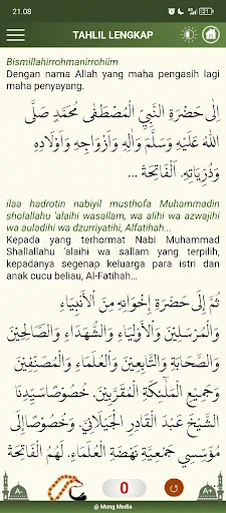 21.08
TAHLIL LENGKAP
Bismillahirrohmanirrohiim
Dengan nama Allah yang maha pengasih lagi
maha penyayang.
إِلَى حَضْرَةِ النَّبِيِّ الْمُصْطَفَى مُحَمَّدٍ صَلَّى
اللهُ عَلَيْهِ وَسَلَّمَ وَآلِهِ وَأَزْوَاجِهِ وَأَوْلَادِهِ
وَذُرِّيَّاتِهِ. اَلْفَاتِحَةُ ...
ilaa hadrotin nabiyil musthofa Muhammadin
sholallahu 'alaihi wasallam, wa alihi wa azwajihi
wa auladihi wa dzurriyatihi, Alfatihah...
Kepada yang terhormat Nabi Muhammad
Shallallahu 'alaihi wa sallam yang terpilih,
kepadanya segenap keluarga para istri dan
anak cucu beliau, Al-Fatihah...
ثُمَّ إِلَى حَضْرَةِ إِخْوَانِهِ مِنَ الْأَنْبِيَاءِ
وَالْمُرْسَلِيْنَ وَالْأَوْلِيَاءِ وَالشُّهَدَاءِ وَالصَّالِحِيْنَ
وَالصَّحَابَةِ وَالتَّابِعِيْنَ وَالْعُلَمَاءِ وَالْمُصَنِّفِيْنَ
وَجَمِيْعِ الْمَلَٰئِكَةِ الْمُقَرَّبِيْنَ. خُصُوْصًا سَيِّدِنَا
الشَّيْخِ عَبْدِ الْقَادِرِ الْجَيْلَانِي. وَخُصُوْصًا إِلَى
مُؤَسِّسِي جَمْعِيَّةِ نَهْضَةِ الْعُلَمَاءِ. لَهُمُ الْفَاتِحَةُ
A-
0
A+
@ Mung Media